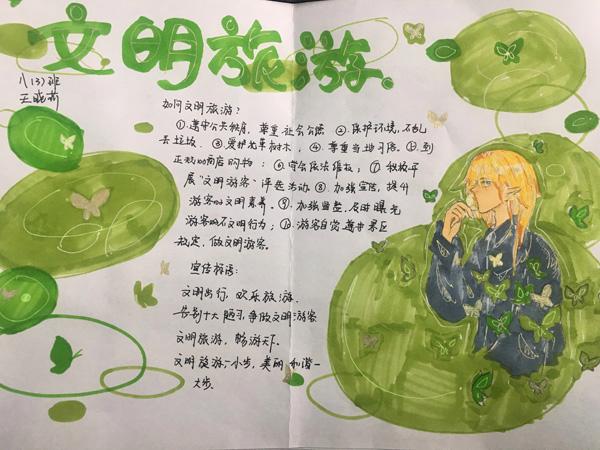 文明旅游
八(3)班
王晓莉
如何文明旅游?
①遵守公共秩序,尊重社会公德 ②保护环境,不乱
丢垃圾 ③爱护花草树木,④尊重当地习俗 ⑤到
正规的商店购物;⑥学会依法维权;⑦积极开
展"文明游客"评选活动 ⑧加强宣传,提升
游客的文明素养。⑨加强监督,及时曝光
游客的不文明行为;⑩游客自觉遵守景区
规定,做文明游客。
宣传标语:
文明出行,欢乐旅游.
告别十大陋习,争做文明游客
文明旅游,畅游天下.
文明旅游一小步,美丽和谐一
大步.